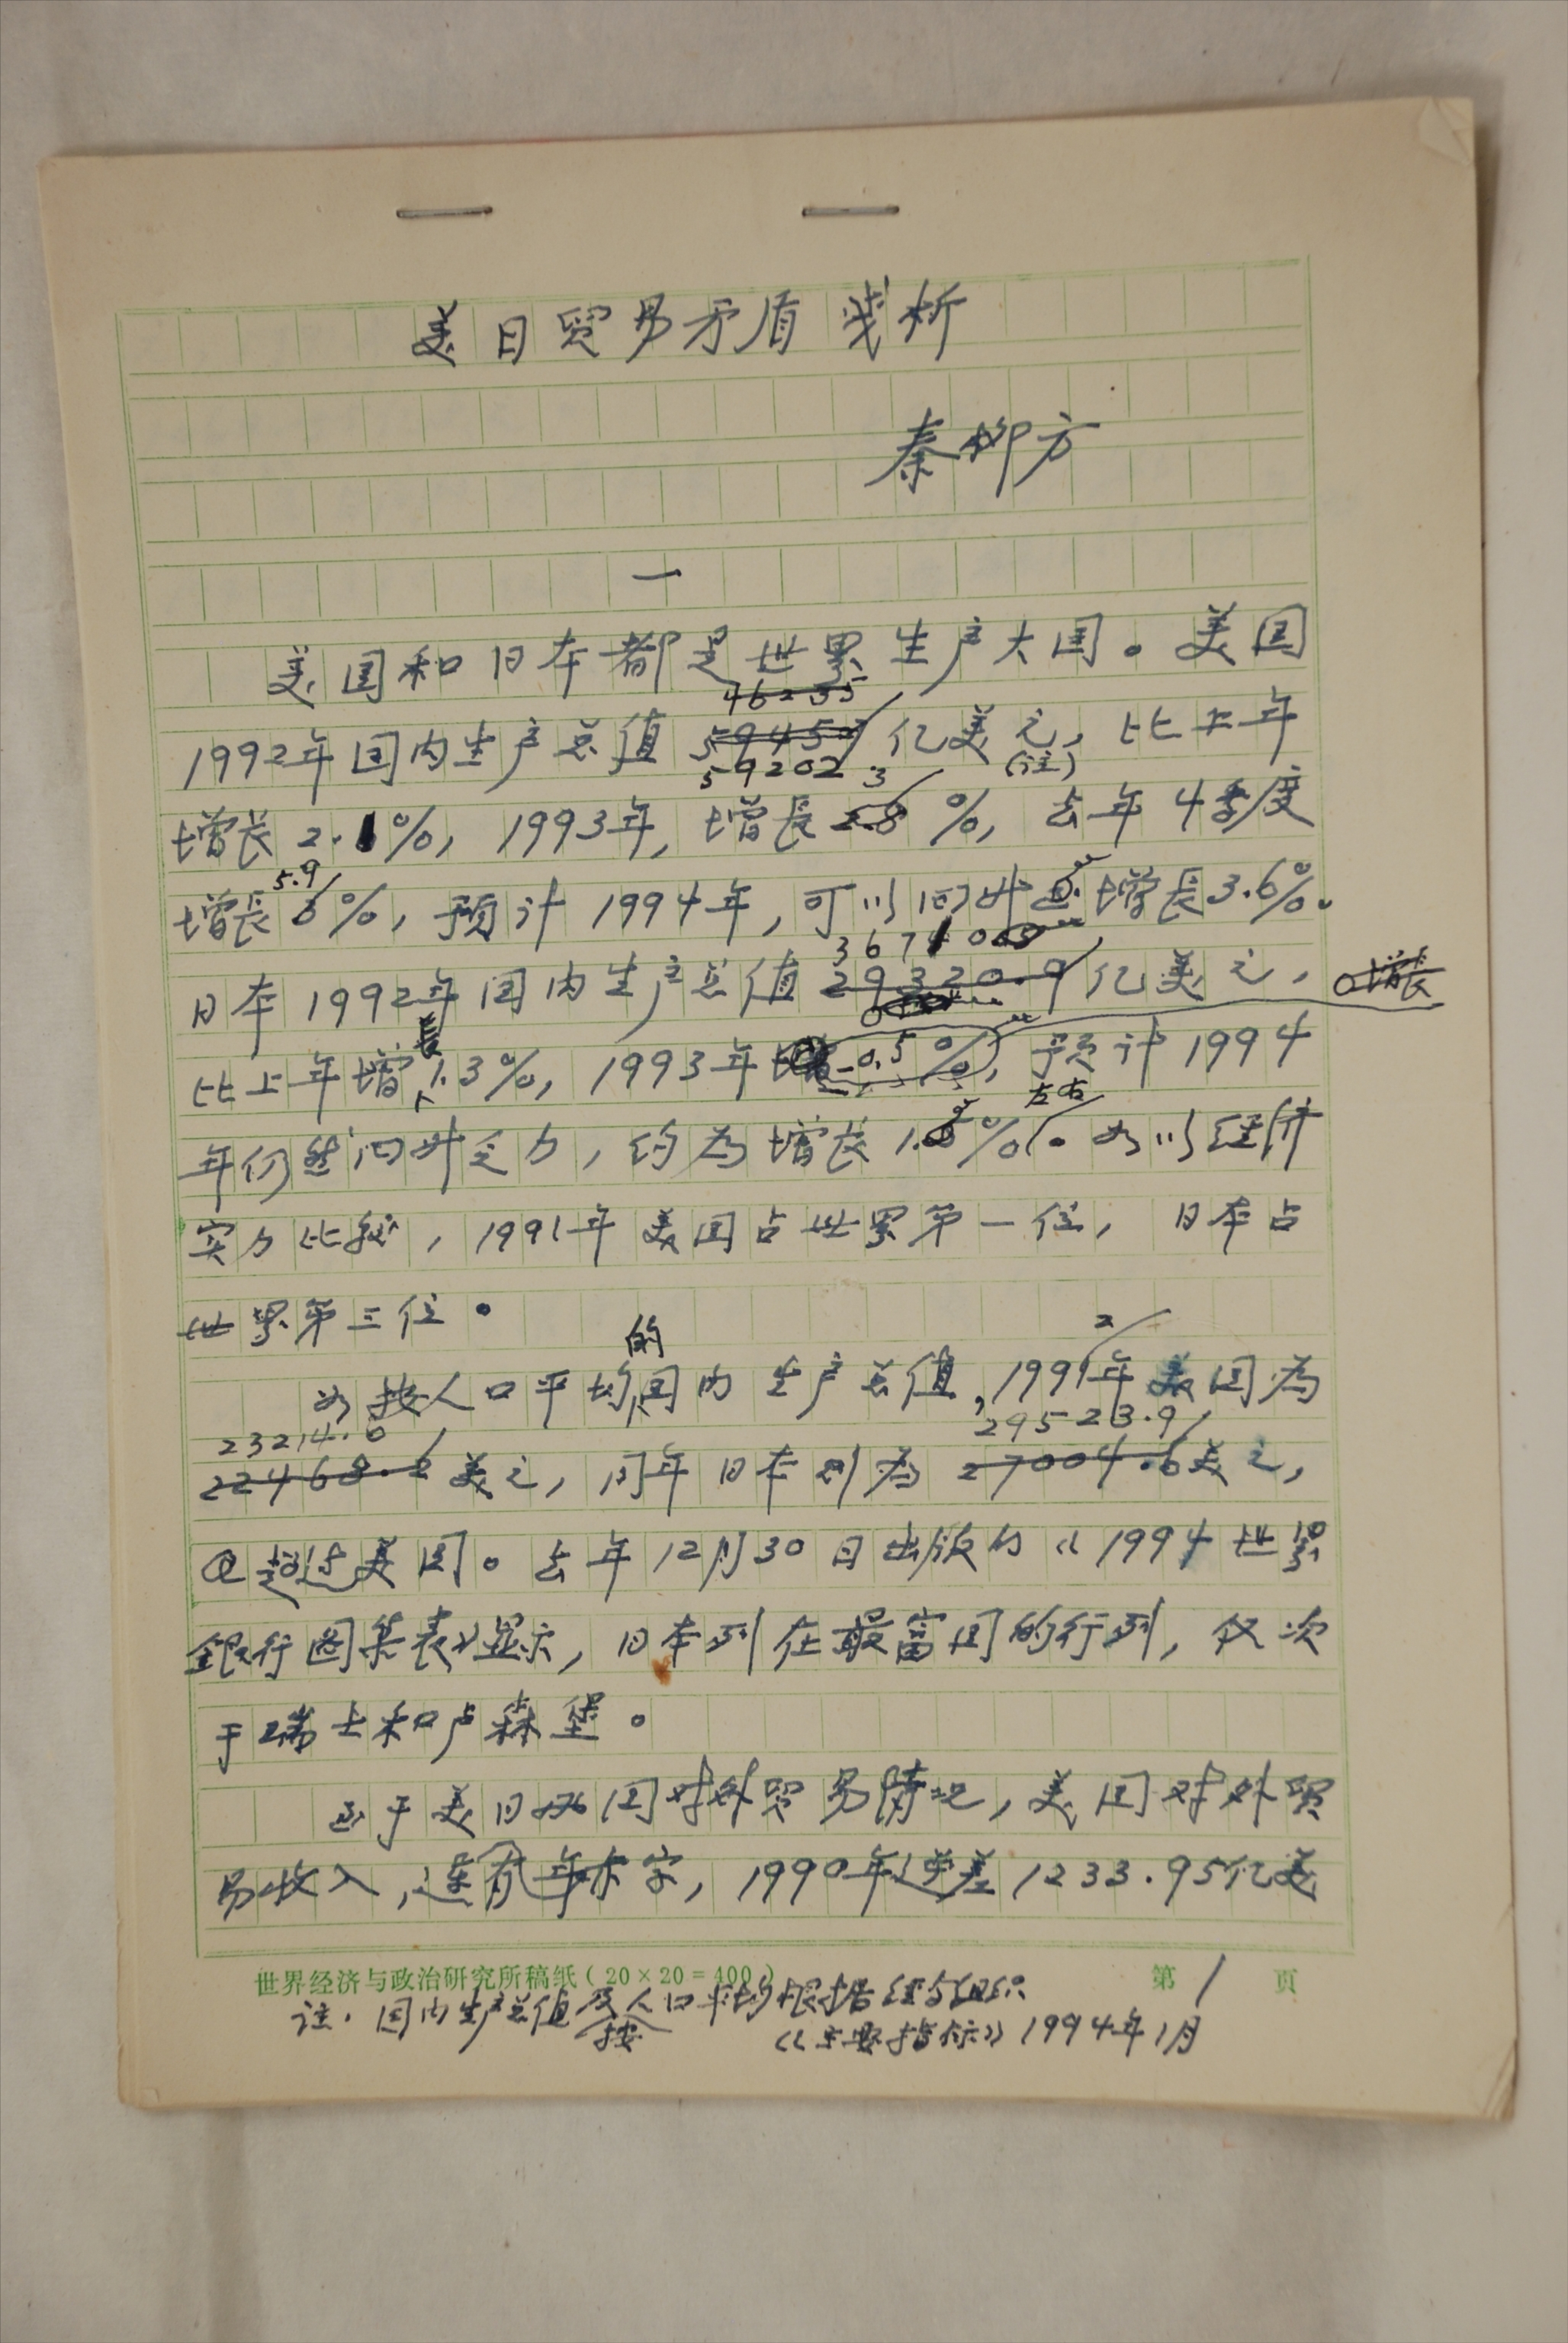 美日贸易矛盾浅析
秦柳方
一
美国和日本都是世界生产大国。美国
46255
1992年国内生产总值59450亿美元，比上年
59202.3
（注）
增长2.1%，1993年，增長2.8%，去年4季度
5.9
增長6%，预计1994年，可以回升 增長3.6%。
367100
日本1992年国内生产总值29320.9亿美元，增长
長
比上年增1.3%，1993年 -0.5%，预计1994
左右
年仍然回升乏力，约为增长1. %。如以经济
实力比较，1991年美国占世界第一位，日本占
世界第三位。
的
2
如按人口平均国内生产总值，1991年美国为
23214.6
29523.9
22468.2美元，同年日本则为27004.6美元，
已超过美国。去年12月30日出版的《1994世界
銀行图集表》显示，日本列在最富国的行列，仅次
于瑞士和卢森堡。
至于美日两国对外贸易情况，美国对外贸
易收入，连年有赤字，1990年逆差1233.95亿美
世界经济与政治研究所稿纸（20×20=400）
第1页
注：国内生产总值及按人口平均根据经合组织
《主要指标》1994年1月